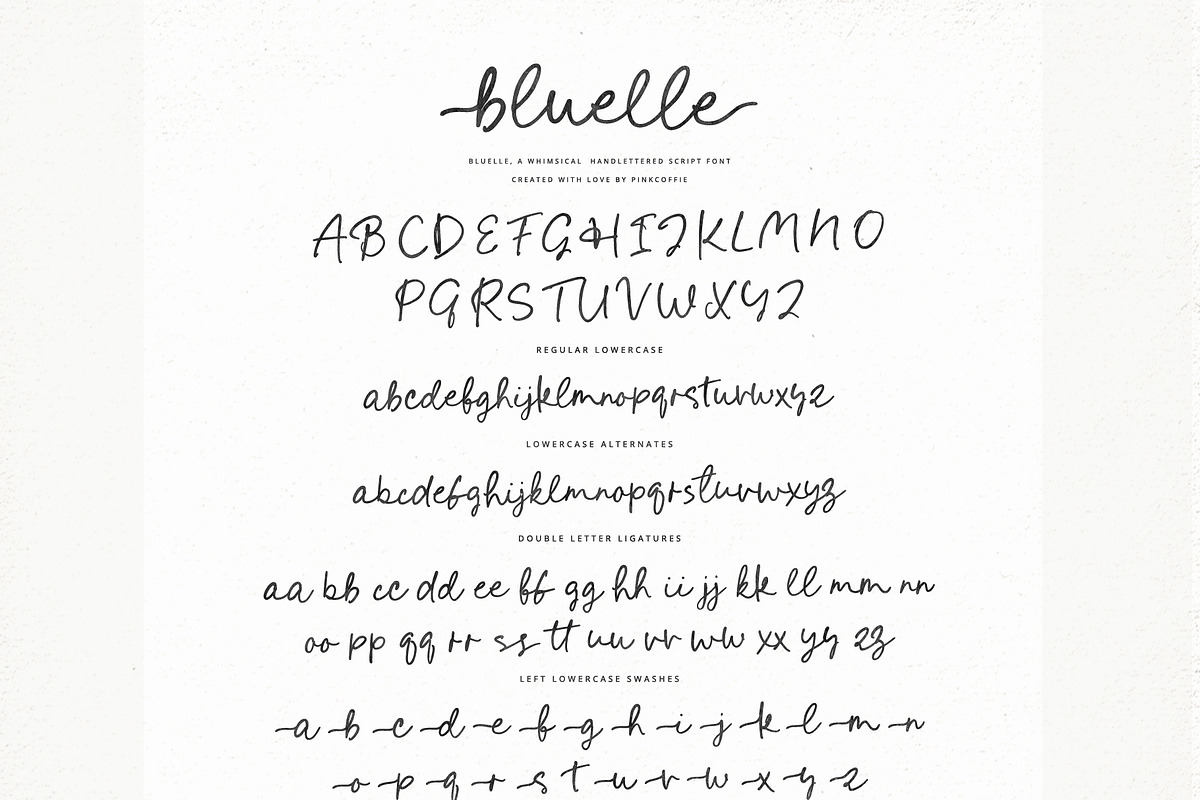 bluelle
BLUELLE, A WHIMSICAL HANDLETTERED SCRIPT FONT
CREATED WITH LOVE BY PINKCOFFIE
A B C D E F G H I J K L M N O
P Q R S T U V W X Y Z
REGULAR LOWERCASE
abcdefghijklmnopqrstuvwxyz
LOWERCASE ALTERNATES
abcdefghijklmnopqrstuvwxyz
DOUBLE LETTER LIGATURES
aa bb cc dd ee ff gg hh ii jj kk ll mm nn
oo pp qq rr ss tt uu vv ww xx yy zz
LEFT LOWERCASE SWASHES
a b c d e f g h i j k l m n
o p q r s t u v w x y z